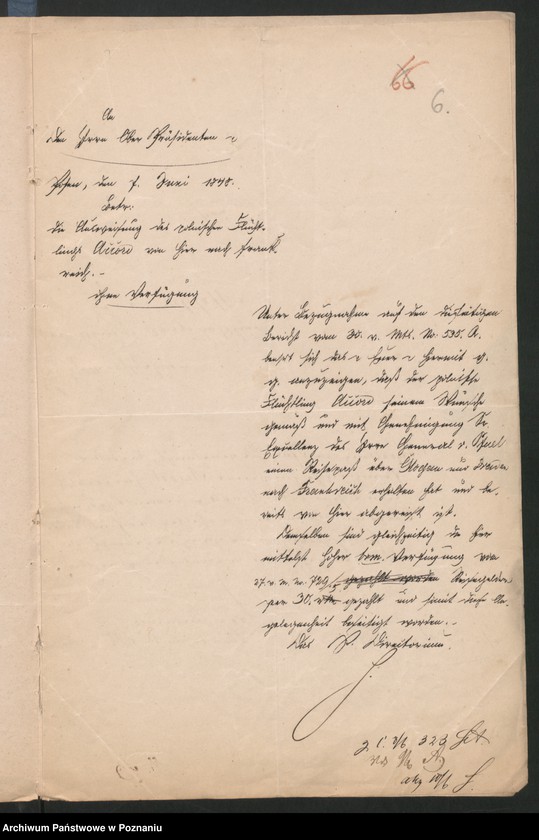 66
6.
An
den Herrn Ober Präsidenten
Posen, den 7. Juni 1848.
Betr:
die Ausweisung des polnischen Flücht-
lings Accord von hier nach Frank
reich. -
ohne Verfügung
Unter Bezugnahme auf den diesseitigen
Bericht vom 30. v. Mts. No. 535. A.
beehrt sich das hiermit g.
g. anzuzeigen, daß der polnische
Flüchtling Accord seinem Wunsche
gemäß und mit Genehmigung Sr
Excellenz des Herrn General v.
einen Reisepaß über Glogau und
nach Frankreich erhalten hat und be-
reits von hier abgereist ist.
Demselben sind gleichzeitig die ihm
mittelst hoher Verfügung von
27. v. m. no. 729 gezahlt worden Reisegelder
per 30. gezahlt und somit diese An-
gelegenheit beseitigt worden. -
Das P. Directorium.
323
Archiwum Państwowe w Poznaniu